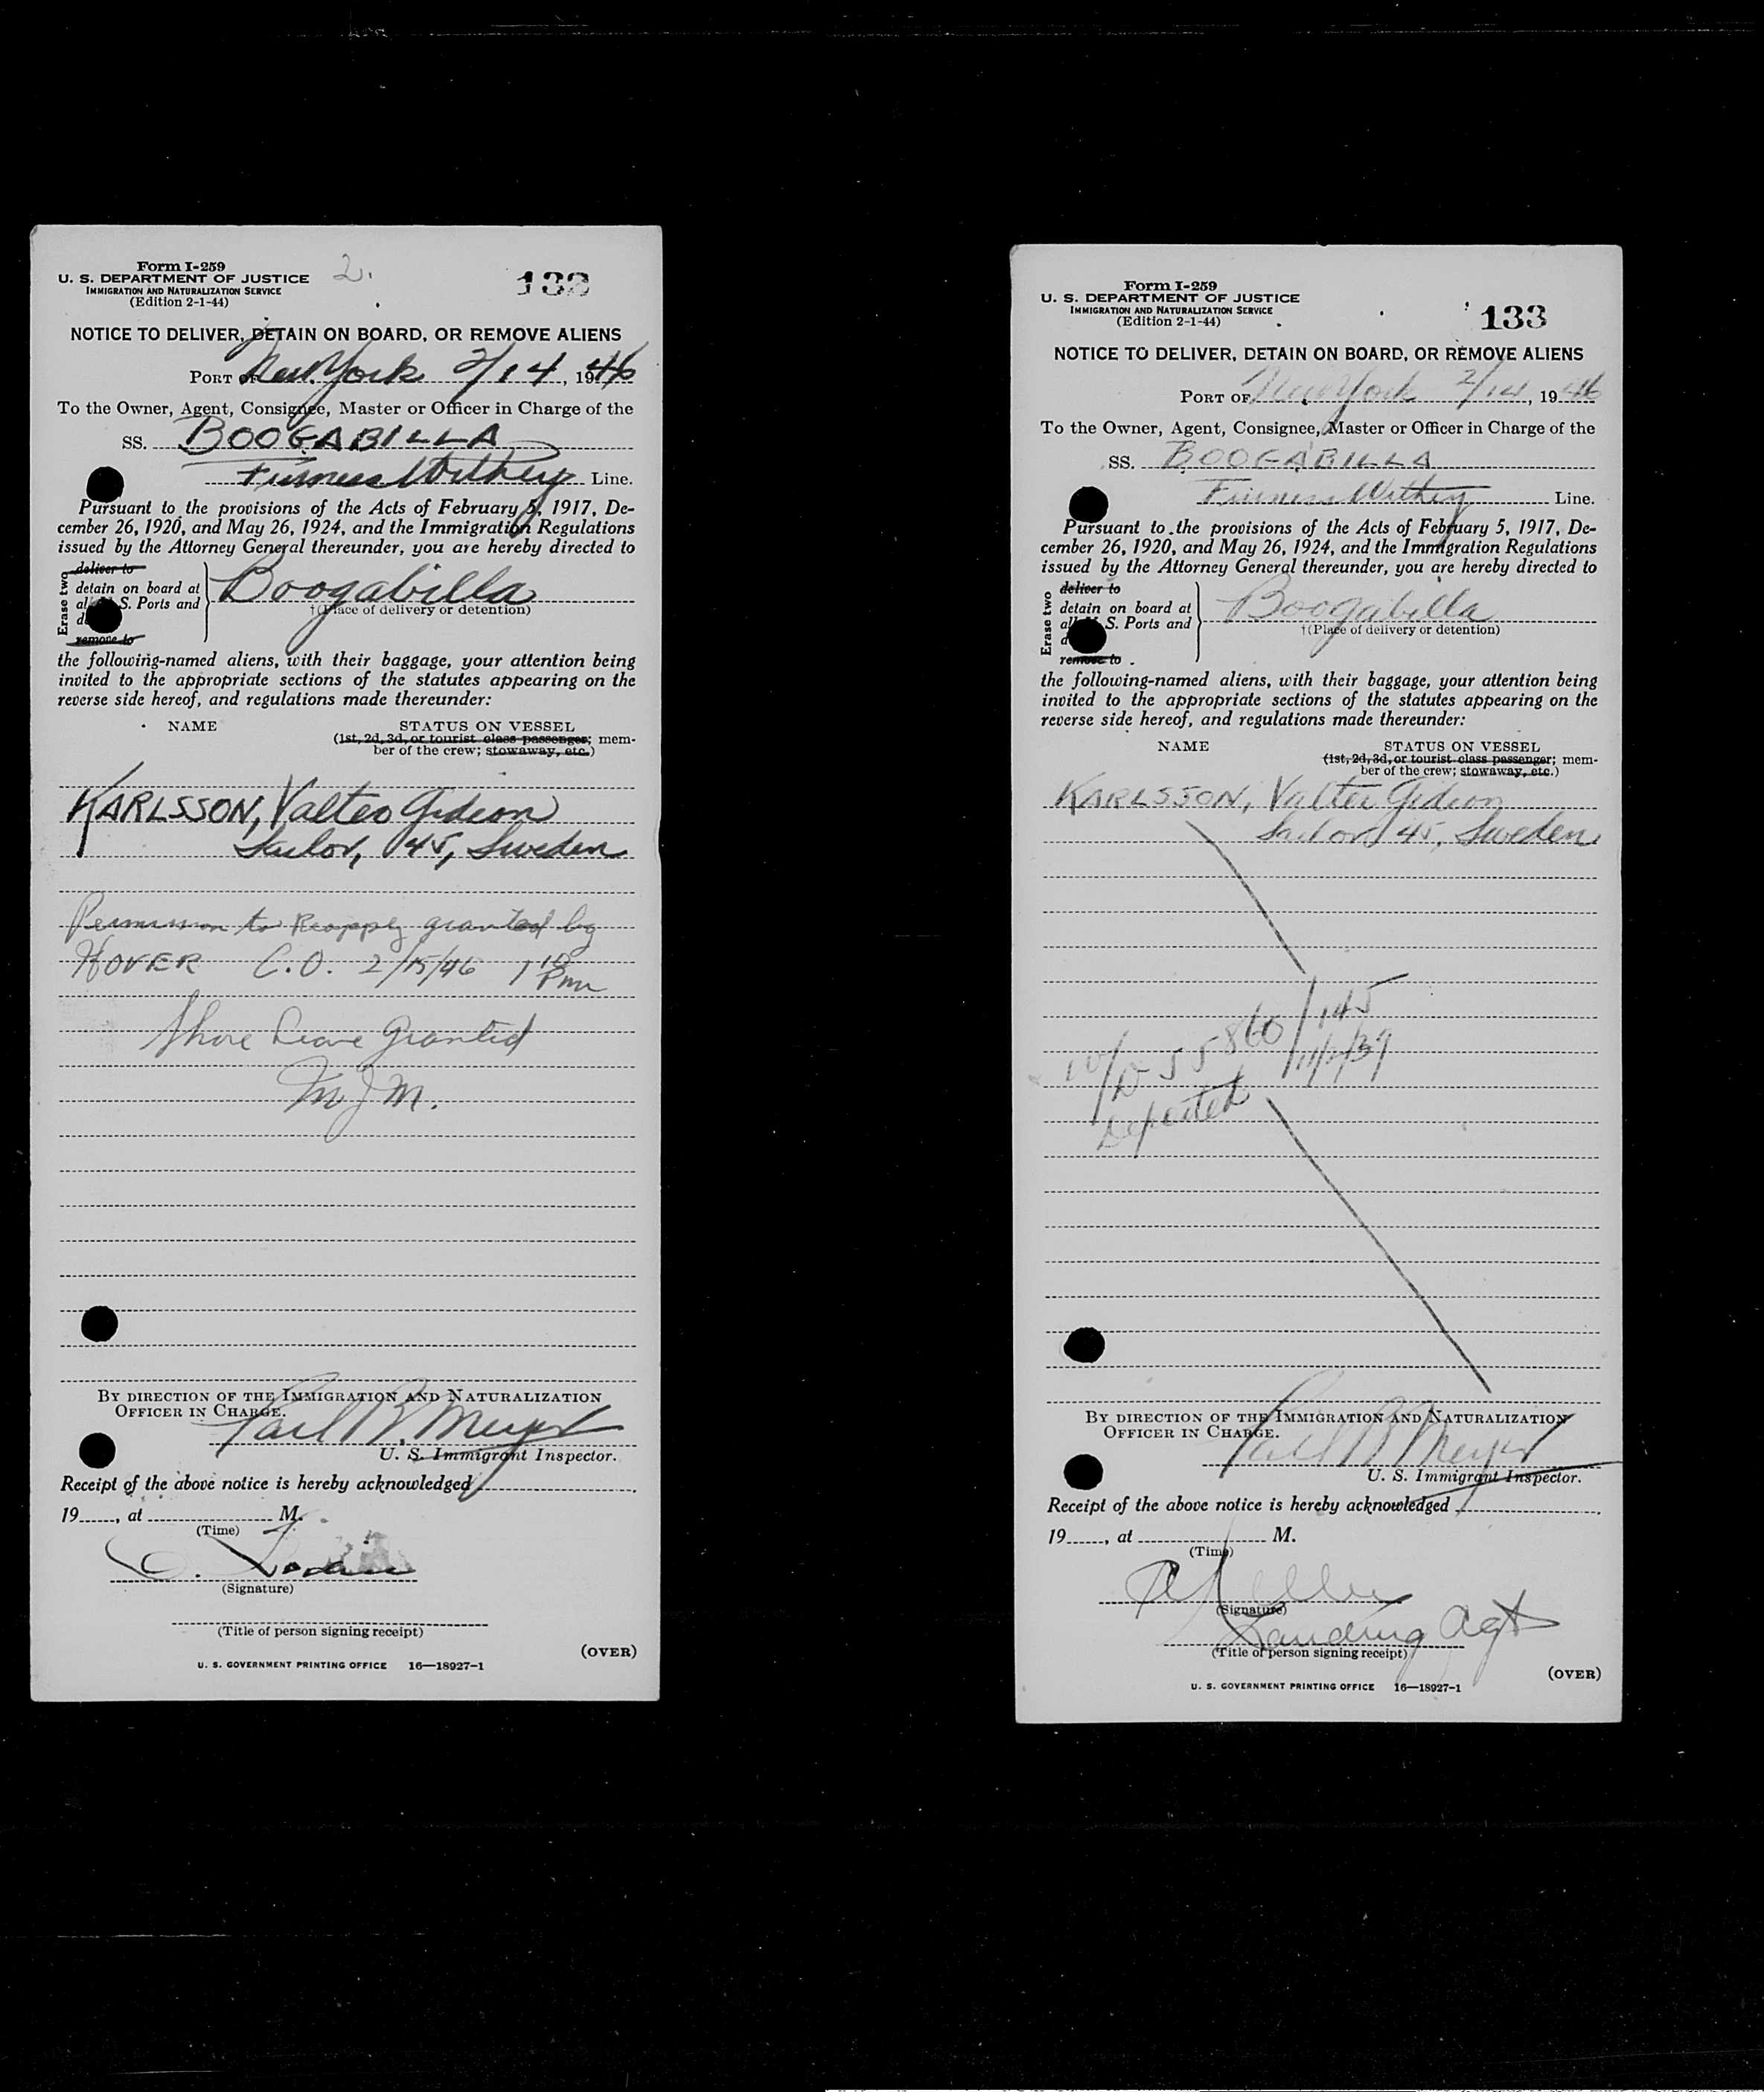 Form I-259
U. S. DEPARTMENT OF JUSTICE
IMMIGRATION AND NATURALIZATION SERVICE
(Edition 2-1-44)
2.
132
NOTICE TO DELIVER, DETAIN ON BOARD, OR REMOVE ALIENS
PORT OF New York 2/14, 1946
To the Owner, Agent, Consignee, Master or Officer in Charge of the
SS. BOOGABILLA
Furness Withey Line.
Pursuant to the provisions of the Acts of February 5, 1917, De-
cember 26, 1920, and May 26, 1924, and the Immigration Regulations
issued by the Attorney General thereunder, you are hereby directed to
Erase two
deliver to
detain on board at
al S. Ports and
d
remove to
Boogabilla
†(Place of delivery or detention)
the following-named aliens, with their baggage, your attention being
invited to the appropriate sections of the statutes appearing on the
reverse side hereof, and regulations made thereunder:
NAME
STATUS ON VESSEL
(1st, 2d, 3d, or tourist class passenger; mem-
ber of the crew; stowaway, etc.)
KARLSSON, Valter Gideon
Sailor, 45, Sweden
Permission to Reapply granted by
HOVER C.O. 2/15/46 1 10 Pm
Shore Leave Granted
M J M.
BY DIRECTION OF THE IMMIGRATION AND NATURALIZATION
OFFICER IN CHARGE.
Paul B. Meyer
U. S. Immigrant Inspector.
Receipt of the above notice is hereby acknowledged
19, at M.
(Time)
(Signature)
(Title of person signing receipt)
(OVER)
U. S. GOVERNMENT PRINTING OFFICE 16—18927-1
Form I-259
U. S. DEPARTMENT OF JUSTICE
IMMIGRATION AND NATURALIZATION SERVICE
(Edition 2-1-44)
133
NOTICE TO DELIVER, DETAIN ON BOARD, OR REMOVE ALIENS
PORT OF New York 2/14, 1946
To the Owner, Agent, Consignee, Master or Officer in Charge of the
SS. BOOGABILLA
Furness Withey Line.
Pursuant to the provisions of the Acts of February 5, 1917, De-
cember 26, 1920, and May 26, 1924, and the Immigration Regulations
issued by the Attorney General thereunder, you are hereby directed to
Erase two
deliver to
detain on board at
all S. Ports and
d
remove to
Boogabilla
†(Place of delivery or detention)
the following-named aliens, with their baggage, your attention being
invited to the appropriate sections of the statutes appearing on the
reverse side hereof, and regulations made thereunder:
NAME
STATUS ON VESSEL
(1st, 2d, 3d, or tourist class passenger; mem-
ber of the crew; stowaway, etc.)
KARLSSON, Valter Gideon
Sailor, 45, Sweden
55860/145
Deported 11/2/39
BY DIRECTION OF THE IMMIGRATION AND NATURALIZATION
OFFICER IN CHARGE.
Paul B Meyer
U. S. Immigrant Inspector.
Receipt of the above notice is hereby acknowledged
19, at M.
(Time)
(Signature)
Landing Agt
(Title of person signing receipt)
(OVER)
U. S. GOVERNMENT PRINTING OFFICE 16—18927-1